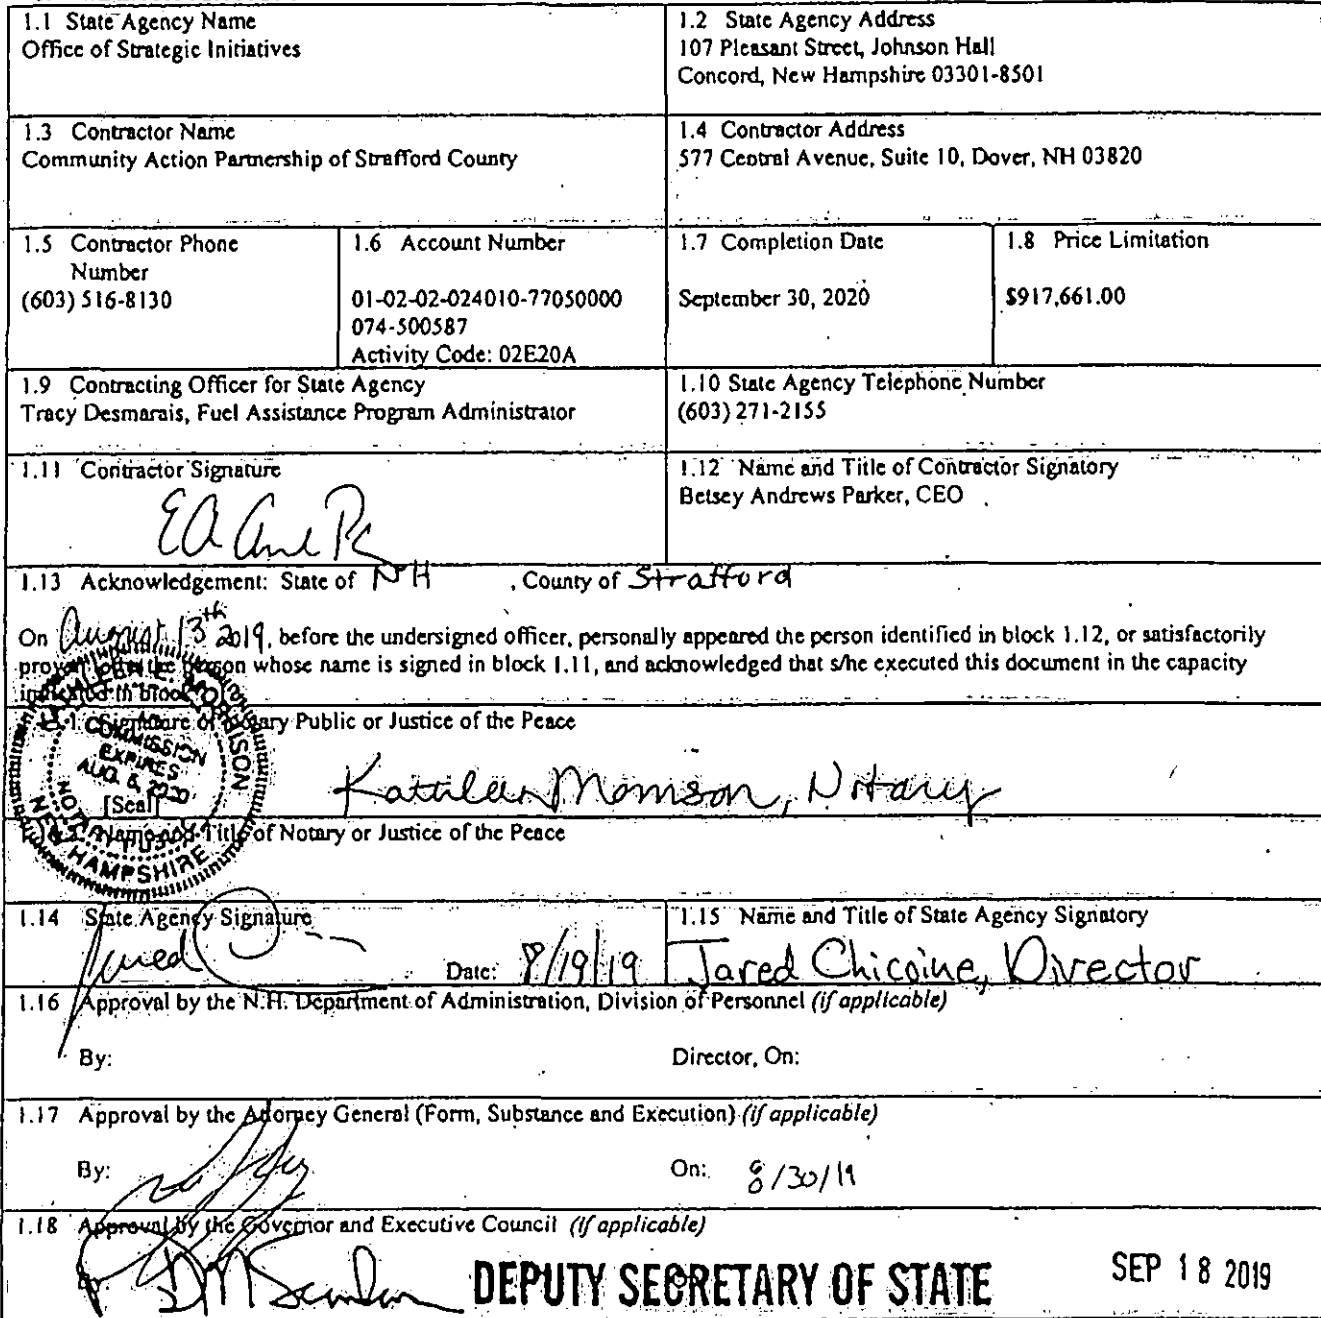 1.1 State Agency Name
Office of Strategic Initiatives
1.2 State Agency Address
107 Pleasant Street, Johnson Hall
Concord, New Hampshire 03301-8501
1.3 Contractor Name
Community Action Partnership of Strafford County
1.4 Contractor Address
577 Central Avenue, Suite 10, Dover, NH 03820
1.5 Contractor Phone
Number
(603) 516-8130
1.6 Account Number
01-02-02-024010-77050000
074-500587
Activity Code: 02E20A
1.7 Completion Date
September 30, 2020
1.8 Price Limitation
$917,661.00
1.9 Contracting Officer for State Agency
Tracy Desmarais, Fuel Assistance Program Administrator
1.10 State Agency Telephone Number
(603) 271-2155
1.11 Contractor Signature
1.12 Name and Title of Contractor Signatory
Betsey Andrews Parker, CEO
1.13 Acknowledgement: State of NH , County of Strafford
On August 13th 2019, before the undersigned officer, personally appeared the person identified in block 1.12, or satisfactorily
person whose name is signed in block 1.11, and acknowledged that s/he executed this document in the capacity
in block
Signature of Notary Public or Justice of the Peace
KATHLEEN E. MORRISON
COMMISSION
EXPIRES
AUG. 6, 2020
[Seal]
NOTARY PUBLIC
NEW HAMPSHIRE
Kathleen Morrison, Notary
Name and Title of Notary or Justice of the Peace
1.14 State Agency Signature
Jared
Date: 8/19/19
1.15 Name and Title of State Agency Signatory
Jared Chicoine, Director
1.16 Approval by the N.H. Department of Administration, Division of Personnel (if applicable)
By:
Director, On:
1.17 Approval by the Attorney General (Form, Substance and Execution) (if applicable)
By:
On: 8/30/19
1.18 Approval by the Governor and Executive Council (if applicable)
DEPUTY SECRETARY OF STATE
SEP 18 2019